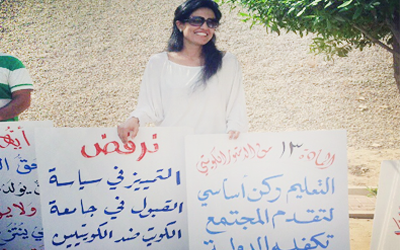 المادة ١٣ من الدستور الكويتي
التعليم ركن أساسي
لتقدم المجتمع
تكفله الدولة
نرفض
التمييز في سياسة
القبول في جامعة
الكويت ضد الكويتيين